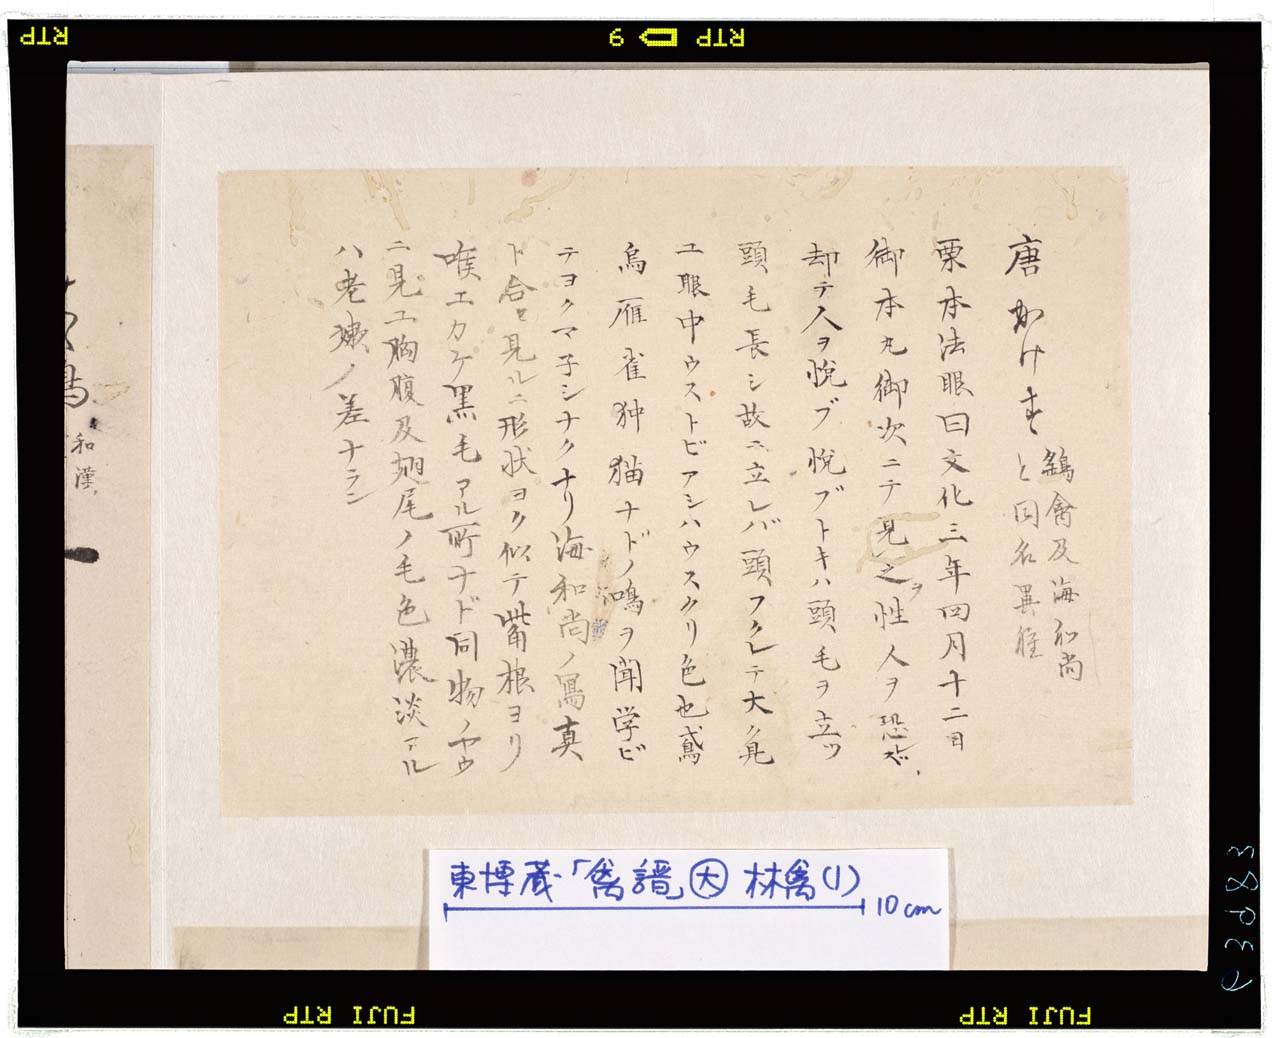 唐かけす
鵁禽及海和尚
と同名異種
栗本法眼曰文化三年四月十二日
御本丸御次ニテ見之ヲ性人ヲ恐ズ
却テ人ヲ悦ブ悦ブトキハ頭毛ヲ立ツ
頭毛長シ故ニ立レバ頭フクレテ大ク見
ユ眼中ウストビアシハウスクリ色也鳶
烏雁雀狆猫ナドノ鳴ヲ聞学ビ
テヨクマ子シナクナリ海和尚ノ写真
ト合セ見ルニ形状ヨク似テ觜根ヨリ
喉エカケ黒毛アル所ナド同物ノヤウ
ニ見ユ胸腹及翅尾ノ毛色濃淡アル
ハ老嫩ノ差ナラン
和漢
東博蔵「禽譜」大 林禽(1)
10cm
RTP
9
RTP
FUJI RTP
FUJI RTP